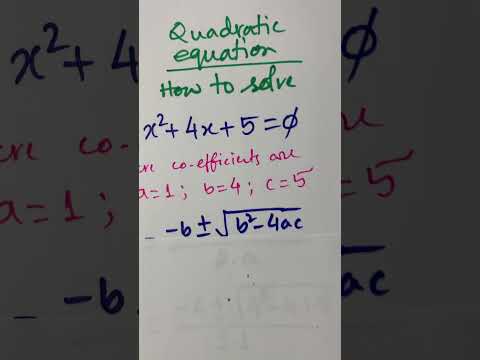 Quadratic
equation
How to solve
x²+4x+5=0
ere co-efficients are
a=1; b=4; c=5
-b±√b²-4ac